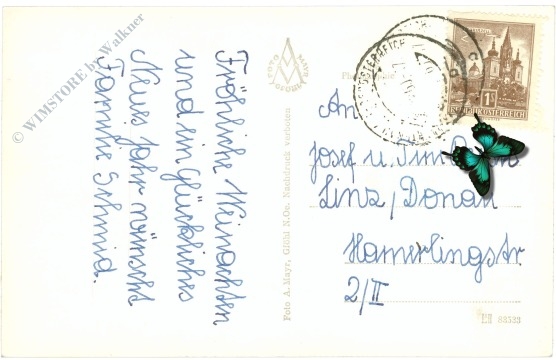 © WIMSTORE by Walkner
Fröhliche Weinachten
und ein Glückliches
Neues Jahr wünscht
Familie Schmid.
FOTO
MAYR
GFÖHL
Foto A. Mayr, Gföhl N.Oe. Nachdruck verboten
ÖSTERREICH
1S
REPUBLIK ÖSTERREICH
An
Josef u.
Linz/Donau
Hamerlingstr
2/II
83533